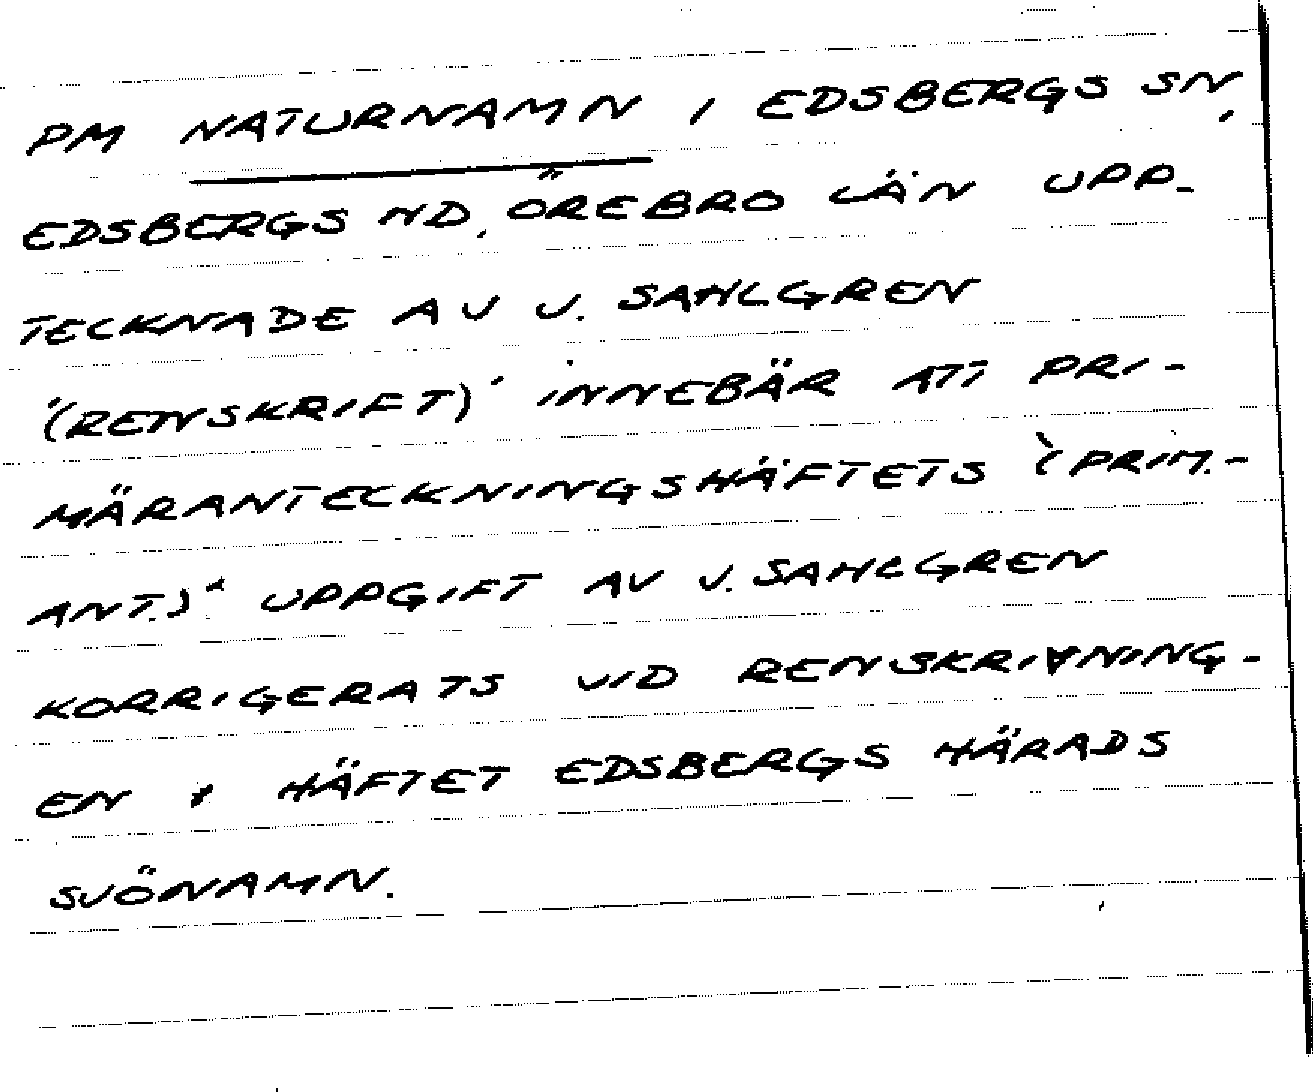 PM NATURNAMN I EDSBERGS SN,
EDSBERGS HD, ÖREBRO LÄN UPP-
TECKNADE AV J. SAHLGREN
'(RENSKRIFT)' INNEBÄR ATT PRI-
MÄRANTECKNINGSHÄFTETS '(PRIM.-
ANT.)' UPPGIFT AV J. SAHLGREN
KORRIGERATS VID RENSKRIVNING-
EN I HÄFTET EDSBERGS HÄRADS
SJÖNAMN.